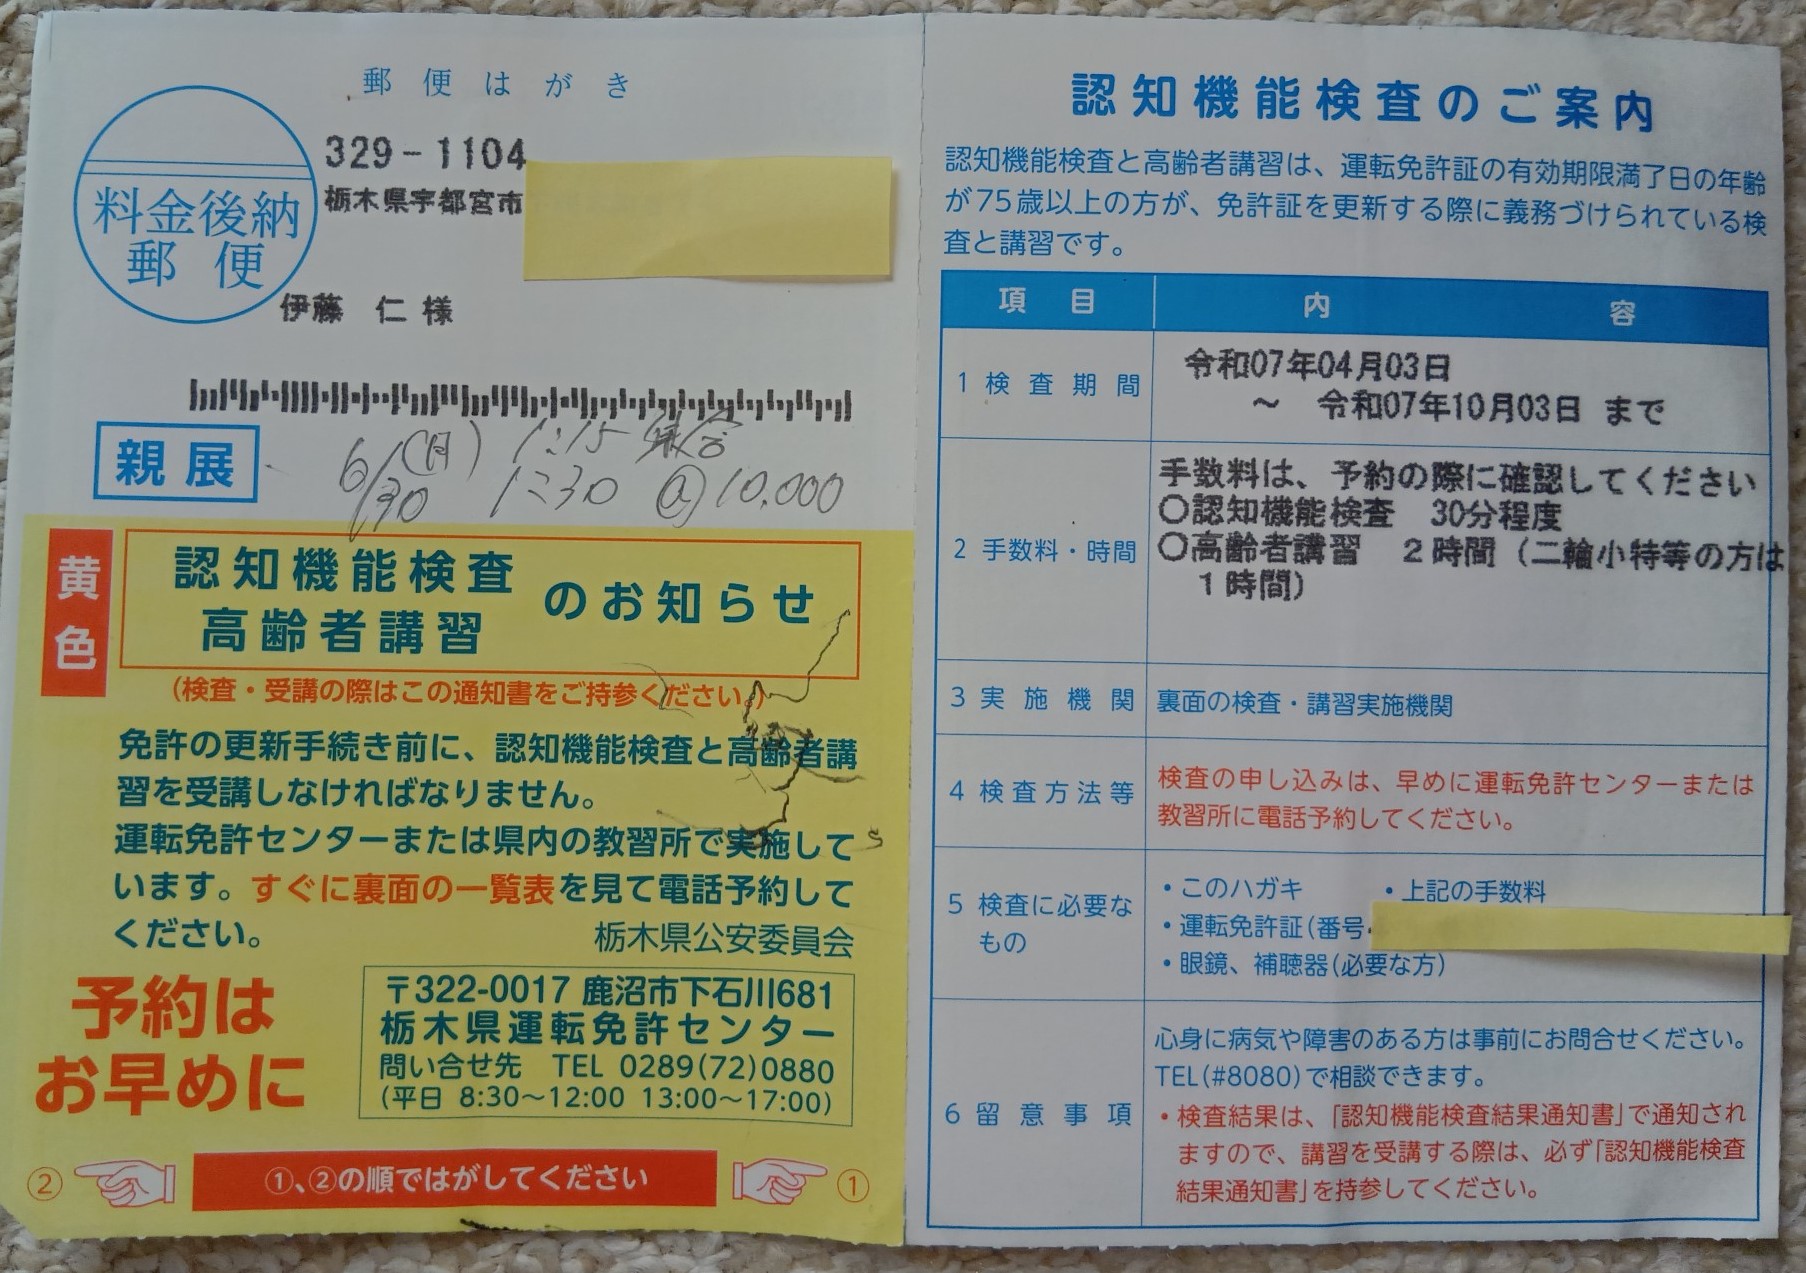 郵便はがき
329-1104
栃木県宇都宮市
料金後納
郵便
伊藤 仁 様
親展
6/30 (月) 1:15 集合
1:30 @10,000
黄色
認知機能検査
高齢者講習
のお知らせ
(検査・受講の際はこの通知書をご持参ください。)
免許の更新手続き前に、認知機能検査と高齢者講
習を受講しなければなりません。
運転免許センターまたは県内の教習所で実施して
います。すぐに裏面の一覧表を見て電話予約して
ください。
栃木県公安委員会
予約は
お早めに
〒322-0017 鹿沼市下石川681
栃木県運転免許センター
問い合せ先 TEL 0289(72)0880
(平日 8:30〜12:00 13:00〜17:00)
② ①、②の順ではがしてください ①
認知機能検査のご案内
認知機能検査と高齢者講習は、運転免許証の有効期限満了日の年齢
が75歳以上の方が、免許証を更新する際に義務づけられている検
査と講習です。
項目 内容
1 検査期間
令和07年04月03日
〜 令和07年10月03日 まで
2 手数料・時間
手数料は、予約の際に確認してください
○認知機能検査 30分程度
○高齢者講習 2時間(二輪小特等の方は
1時間)
3 実施機関 裏面の検査・講習実施機関
4 検査方法等
検査の申し込みは、早めに運転免許センターまたは
教習所に電話予約してください。
5 検査に必要な
もの
・このハガキ ・上記の手数料
・運転免許証(番号
・眼鏡、補聴器(必要な方)
6 留意事項
心身に病気や障害のある方は事前にお問合せください。
TEL(#8080)で相談できます。
・検査結果は、「認知機能検査結果通知書」で通知され
ますので、講習を受講する際は、必ず「認知機能検査
結果通知書」を持参してください。